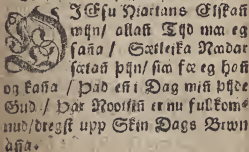 JEsu Martans Elskañ
mijn/ allañ Tijd mæ eg
saña / Sætleika Naadar
sætañ þijn/ sia fæ eg hañ
og kaña / Það eñ i Dag miñ þijde
Gud / þar Noottiñ er nu fullkom-
nud/dregst upp Skin Dags Brwn
aña.